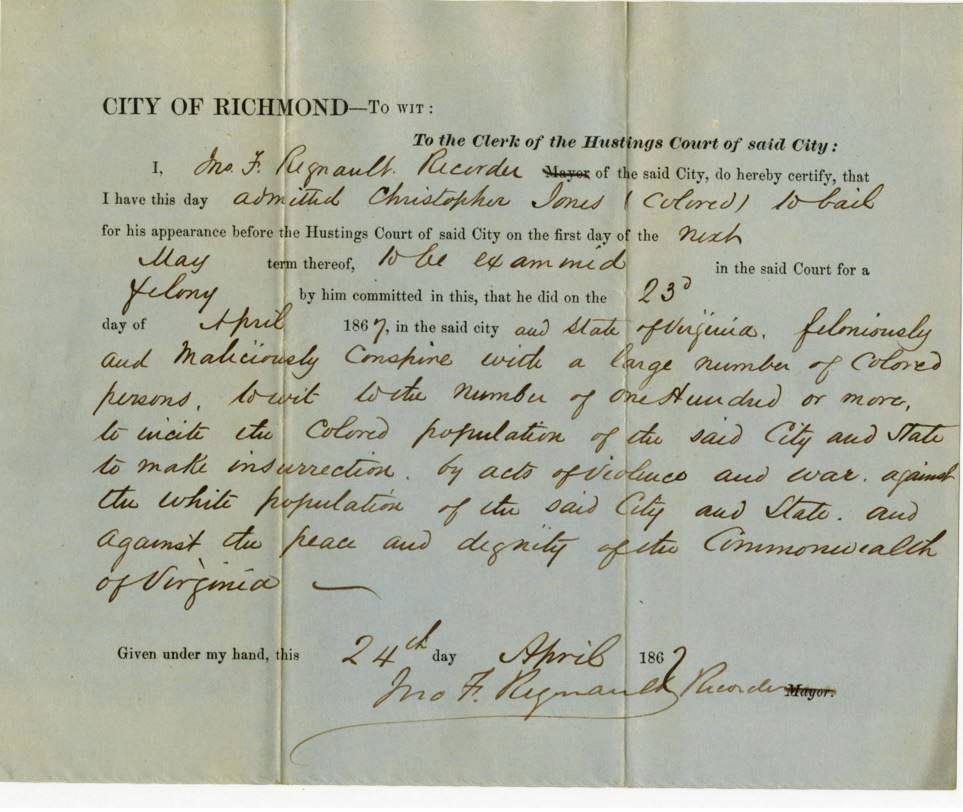 CITY OF RICHMOND—To wit:
To the Clerk of the Hustings Court of said City:
I, Jno. F. Regnault. Recorder Mayor of the said City, do hereby certify, that
I have this day admitted Christopher Jones (Colored) to bail
for his appearance before the Hustings Court of said City on the first day of the next
May term thereof, to be examined in the said Court for a
felony by him committed in this, that he did on the 23d
day of April 1867, in the said city and State of Virginia, feloniously
and Maliciously Conspire with a large number of Colored
persons, to wit to the Number of One Hundred or more,
to incite the Colored population of the said City and State
to make insurrection. by acts of Violence and war. against
the white population of the said City and State. and
against the peace and dignity of the Commonwealth
of Virginia —
Given under my hand, this 24th day April 1867
Jno F. Regnault Recorder Mayor.